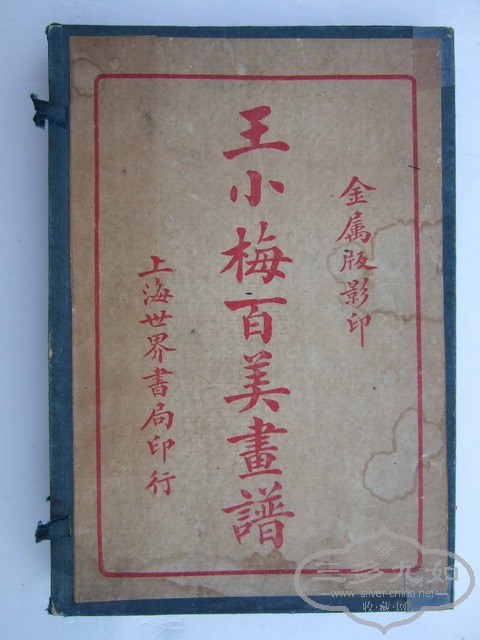 金属版影印
王小梅百美畫譜
上海世界書局印行
三多九如
www.silver-china.net
收·藏·网